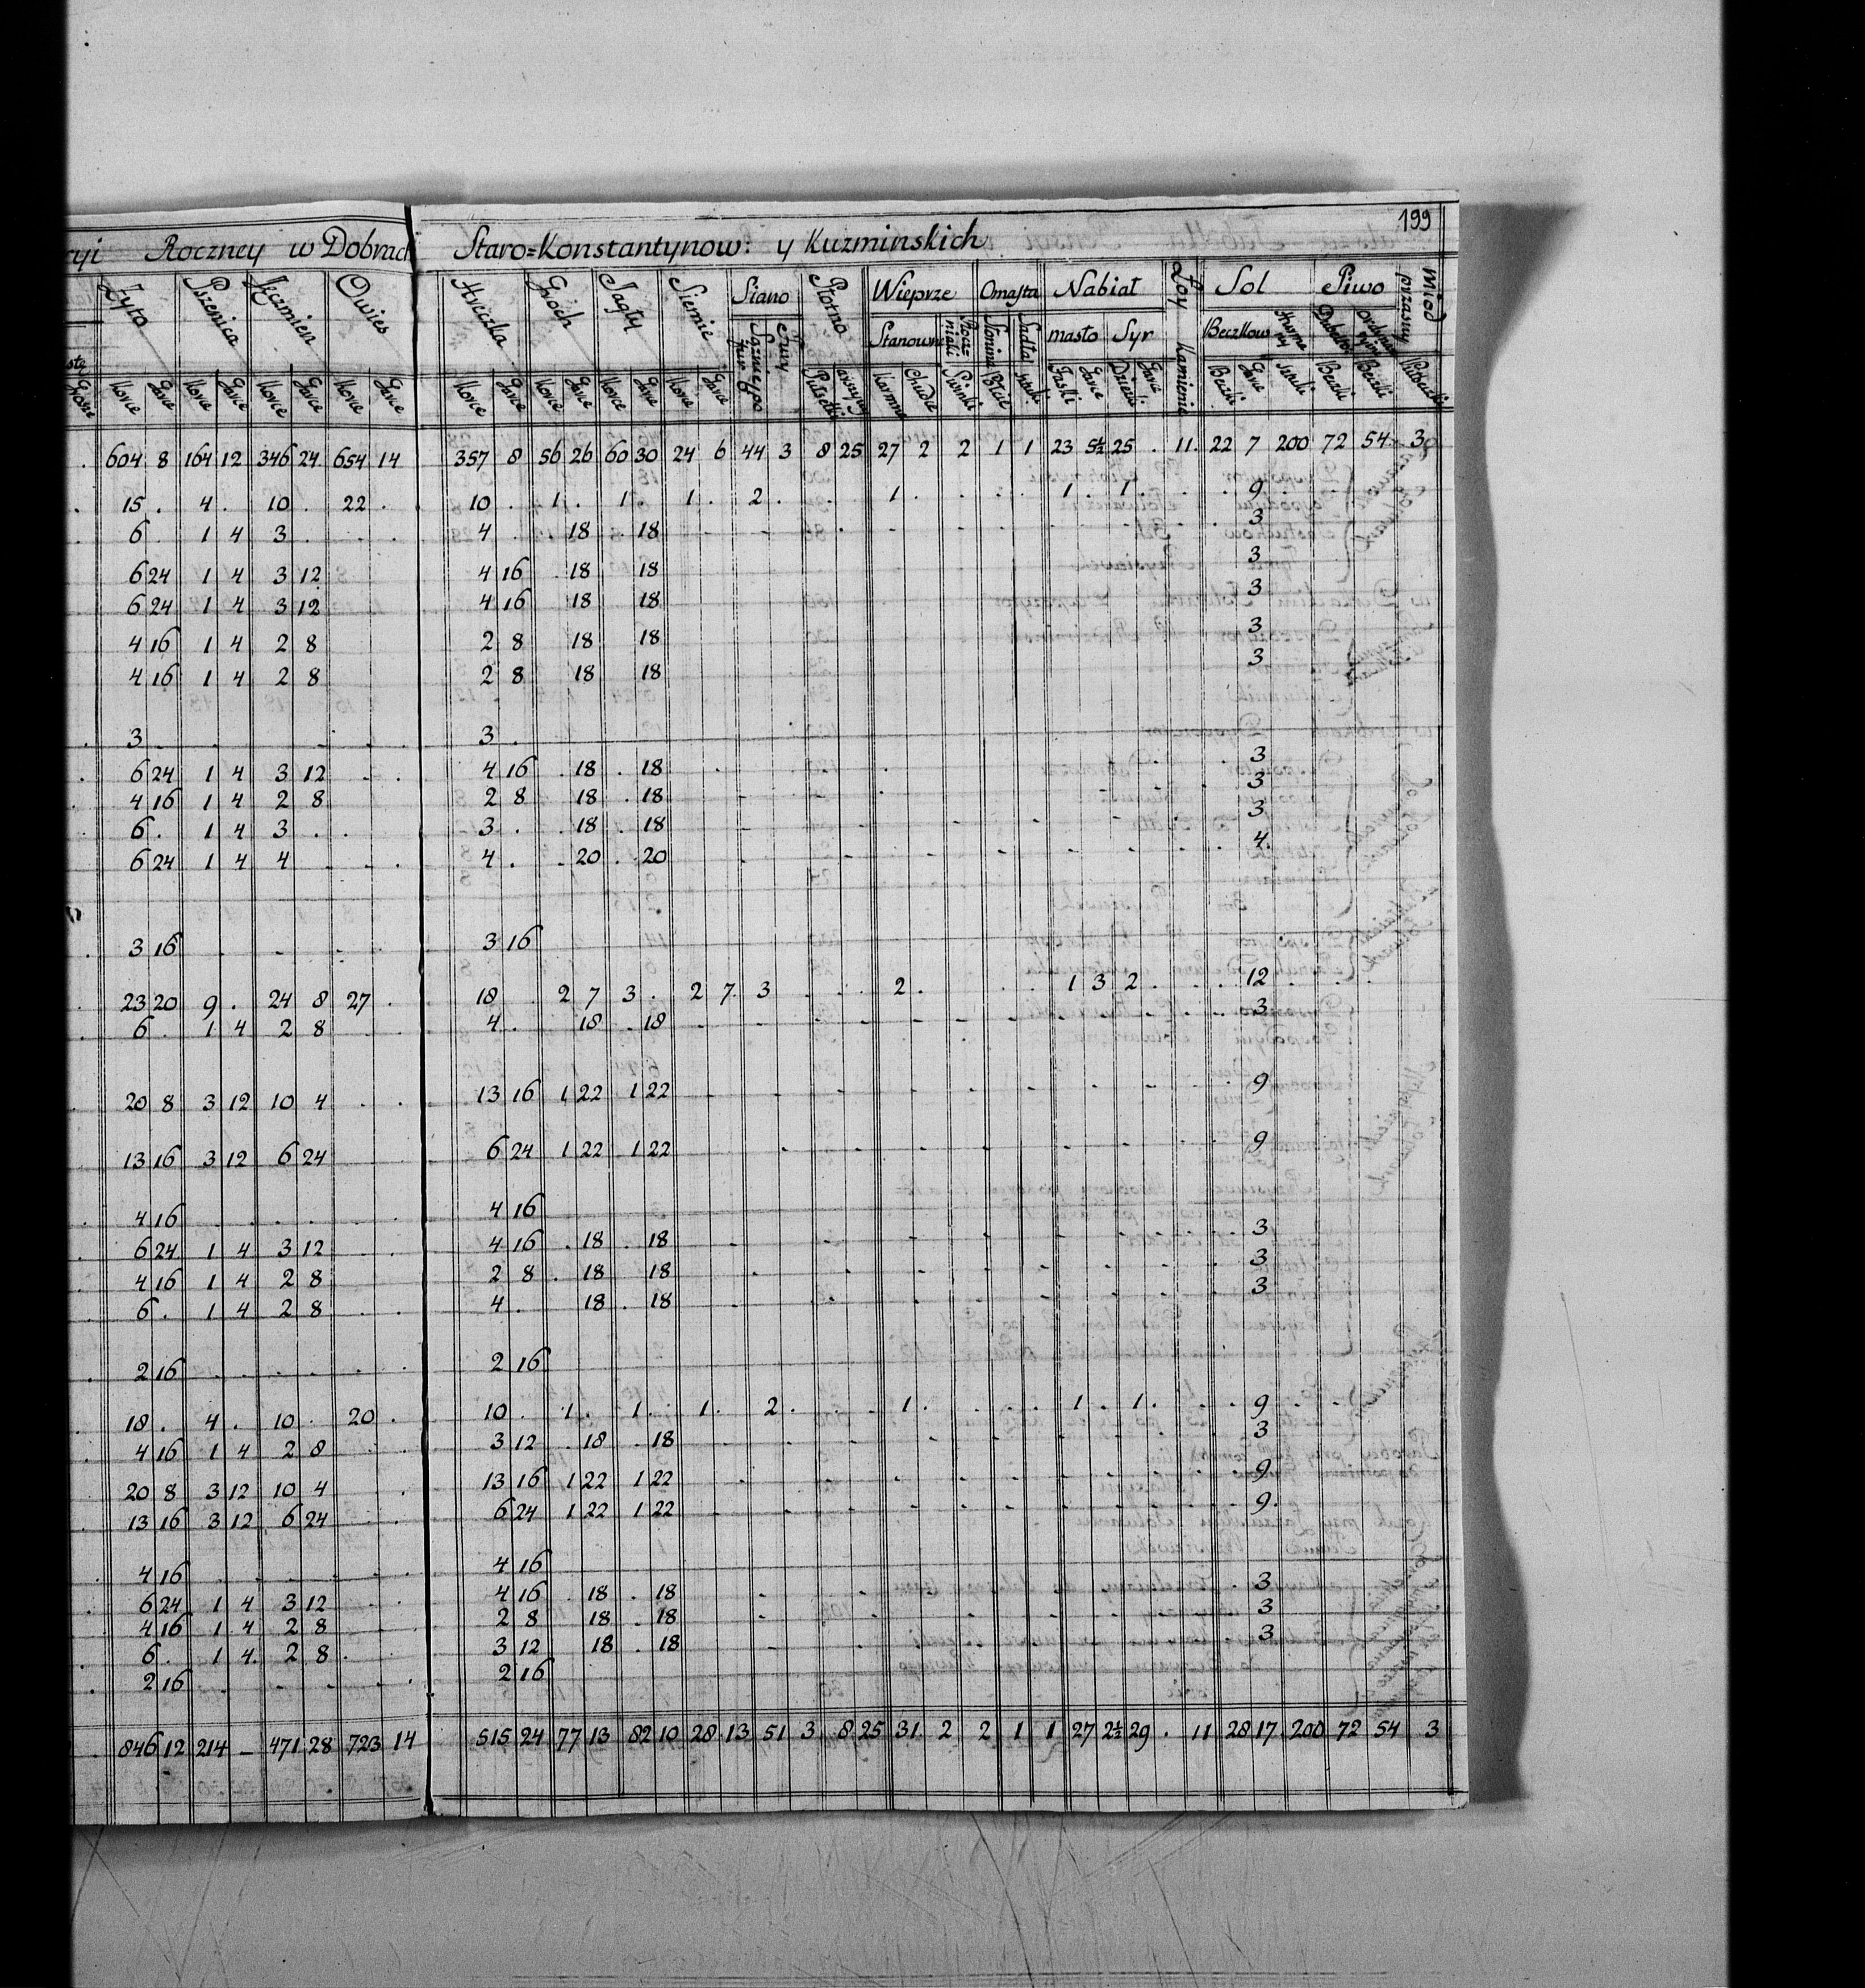 199
Roczney w Dobrach Staro=Konstantynow: y Kuzminskich
Żyto Pszenica Jęczmien Owies Hreczka Groch Jagły Siemie Siano Płotno Wieprze Omasta Nabiał Łoy Sol Piwo miod przasny
Stanowne masło Syr Beczkow
Korce Garce Korce Garce Korce Garce Korce Garce Korce Garce Korce Garce Korce Garce Korce Garce Karmne Chude Faski Garce Kamienie Beczki Garce Beczki Beczki
. 604 8 164 12 346 24 654 14 357 8 56 26 60 30 24 6 44 3 8 25 27 2 2 1 1 23 5½ 25 . 11. 22 7 200 72 54 3
. 15 . 4 . 10 . 22 . 10 . 1 . 1 . 1 . 2 . 1 . 1 . 1 . 9
6 . 1 4 3 . 4 . 18 18 3
6 24 1 4 3 12 4 16 18 18 3
6 24 1 4 3 12 4 16 18 18 3
4 16 1 4 2 8 2 8 18 18 3
4 16 1 4 2 8 2 8 18 18 3
3 . 3 .
6 24 1 4 3 12 4 16 18 18 3
4 16 1 4 2 8 2 8 18 18 3
6 . 1 4 3 . 3 . 18 18 3
6 24 1 4 4 4 . 20 20 4.
3 16 3 16
23 20 9 . 24 8 27 . 18 2 7 3 . 2 7 3 2 . 1 3 2 . 12
6 . 1 4 2 8 4 . 18 18 3
20 8 3 12 10 4 13 16 1 22 1 22 9
13 16 3 12 6 24 6 24 1 22 1 22 9
4 16 4 16
6 24 1 4 3 12 4 16 18 18 3
4 16 1 4 2 8 2 8 18 18 3
6 . 1 4 2 8 4 . 18 18 3
2 16 2 16
18 . 4 . 10 . 20 . 10 . 1 . 1 . 1 . 2 . 1 . 1 . 1 . 9
4 16 1 4 2 8 3 12 18 18 3
20 8 3 12 10 4 13 16 1 22 1 22 9
13 16 3 12 6 24 6 24 1 22 1 22 9.
4 16 4 16
6 24 1 4 3 12 4 16 18 18 3
4 16 1 4 2 8 2 8 18 18 3
6 . 1 4. 2 8 3 12 18 18 3
2 16 2 16
846 12 214 – 471 28 723 14 515 24 77 13 82 10 28 13 51 3 8 25 31 2 2 1 1 27 2½ 29 . 11 28 17 200 72 54 3